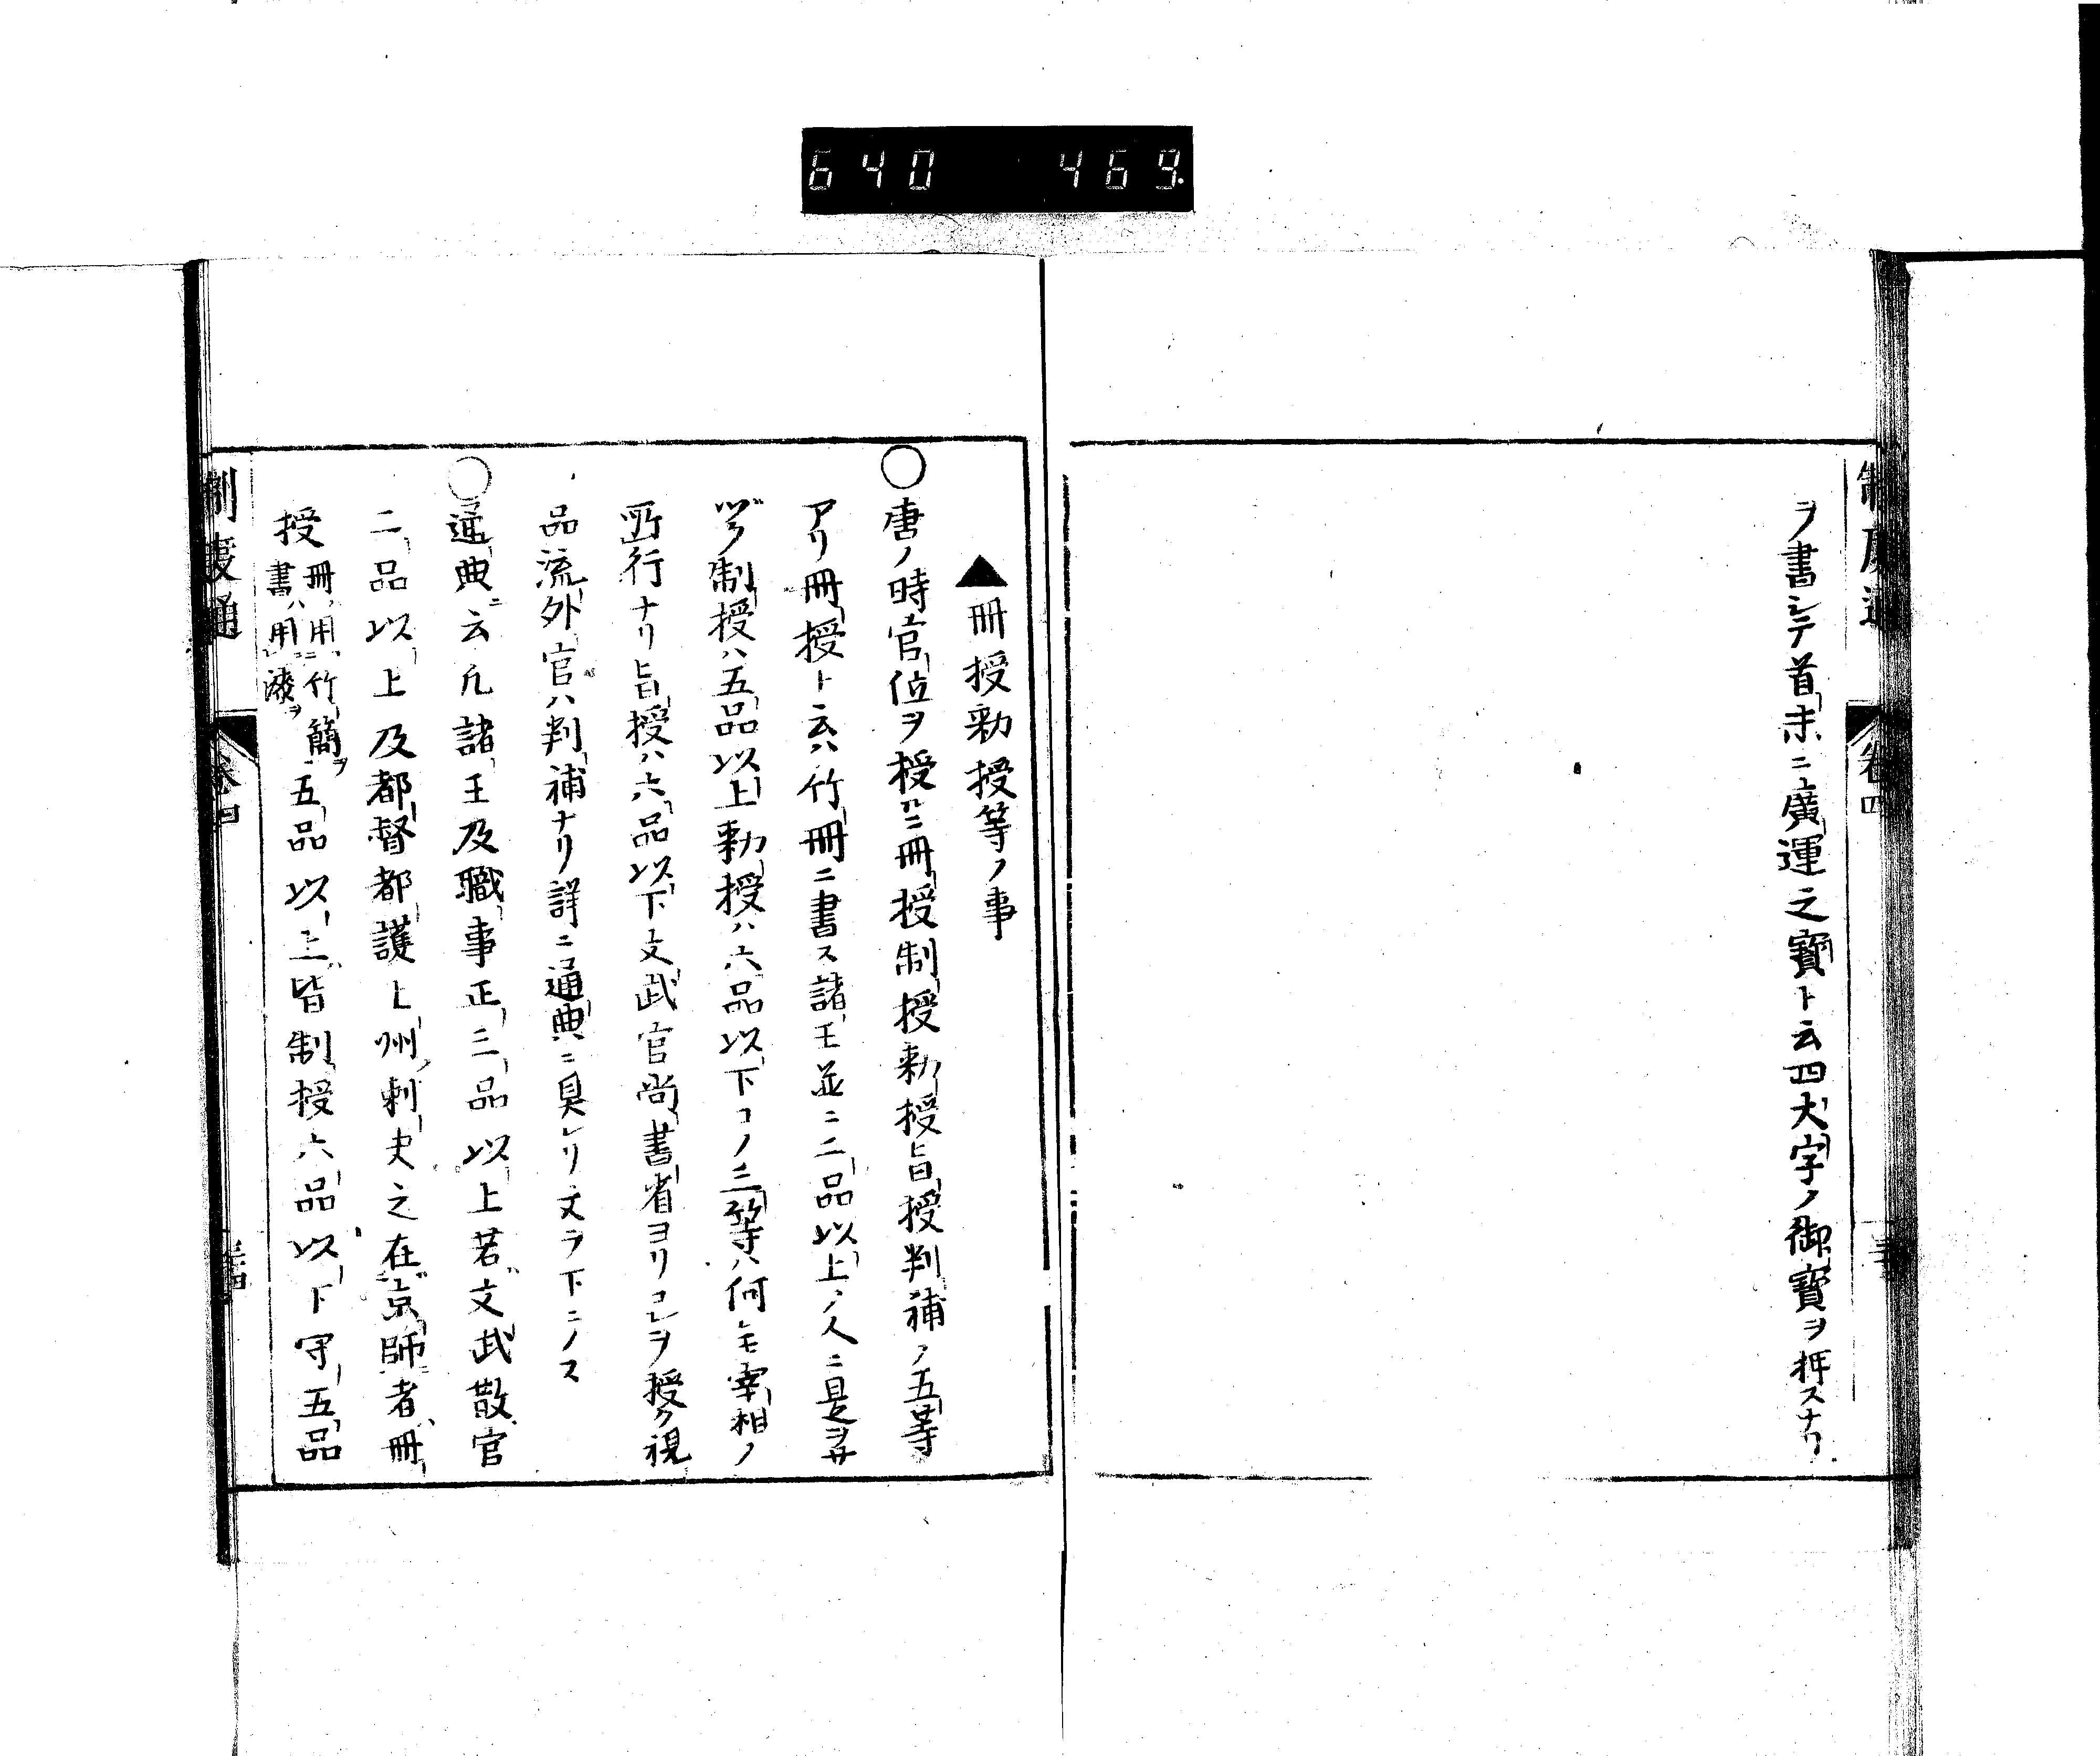 640 469.
制度通
卷四
ヲ書シテ首末ニ廣運之寶ト云四大字ノ御寶ヲ押スナリ
▲冊授勅授等ノ事
○唐ノ時官位ヲ授クルニ冊授制授勅授旨授判補ノ五等
アリ冊授ト云ハ竹冊ニ書ス諸王並ニ二品以上ノ人ニ是ヲサ
ヅク制授ハ五品以上勅授ハ六品以下コノ三等ハ何レモ宰相ノ
所行ナリ旨授ハ六品以下文武官尚書省ヨリコレヲ授ク視
品流外官ハ判補ナリ詳ニ通典ニ具レリ文ヲ下ニノス
○通典ニ云凡諸王及職事正三品以上若文武散官
二品以上及都督都護上州刺史之在京師者冊
授冊用竹簡書用漆五品以上皆制授六品以下守五品
制度通
卷四